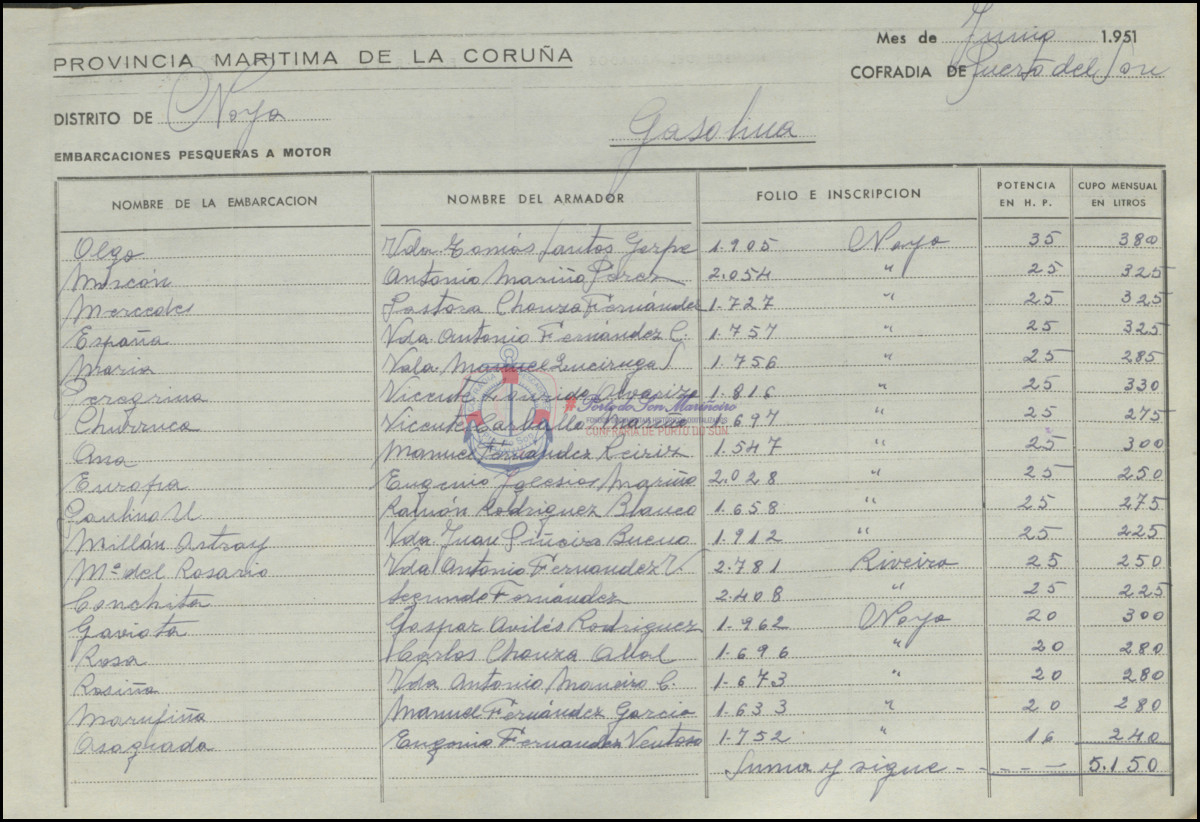 Mes de Junio 1.951
PROVINCIA MARITIMA DE LA CORUÑA
COFRADIA DE Puerto del Son
DISTRITO DE Noya
Gasolina
EMBARCACIONES PESQUERAS A MOTOR
NOMBRE DE LA EMBARCACION NOMBRE DEL ARMADOR FOLIO E INSCRIPCION POTENCIA EN H. P. CUPO MENSUAL EN LITROS
Olga Vda. Tomás Santos Gerpe 1.905 Noya 35 380
Moscón Antonio Mariño Perez 2.054 " 25 325
Mercedes Pastora Chouza Fernández 1.727 " 25 325
España Vda Antonio Fernández C. 1.757 " 25 325
Maria Vda Manuel 1.756 " 25 285
Peregrina Vicente 1.816 " 25 330
Churruca Vicente Carballo Mariño 1.697 " 25 275
Ana Manuel Fernández Reiriz 1.547 " 25 300
Europa Eugenio Yglesias Mariño 2.028 " 25 250
Paulino U Ramón Rodriguez Blanco 1.658 " 25 275
Millán Astray Vda Juan Piñeiro Bueno 1.912 " 25 225
Mª del Rosario Vda Antonio Fernandez V 2.781 Riveira 25 250
Conchita Segundo Fernández 2.408 " 25 225
Gaviota Gaspar Avilés Rodriguez 1.962 Noya 20 300
Rosa Carlos Chouza Abal 1.696 " 20 280
Rosiña Vda Antonio Maneiro C. 1.673 " 20 280
Marufiña Manuel Fernández Garcia 1.633 " 20 280
Osagrada Eugenio Fernandez Ventoso 1.752 " 16 240
Suma y sigue - - - - - 5.150
Porto do Son Mariñeiro
CONFRARÍA DE PORTO DO SON